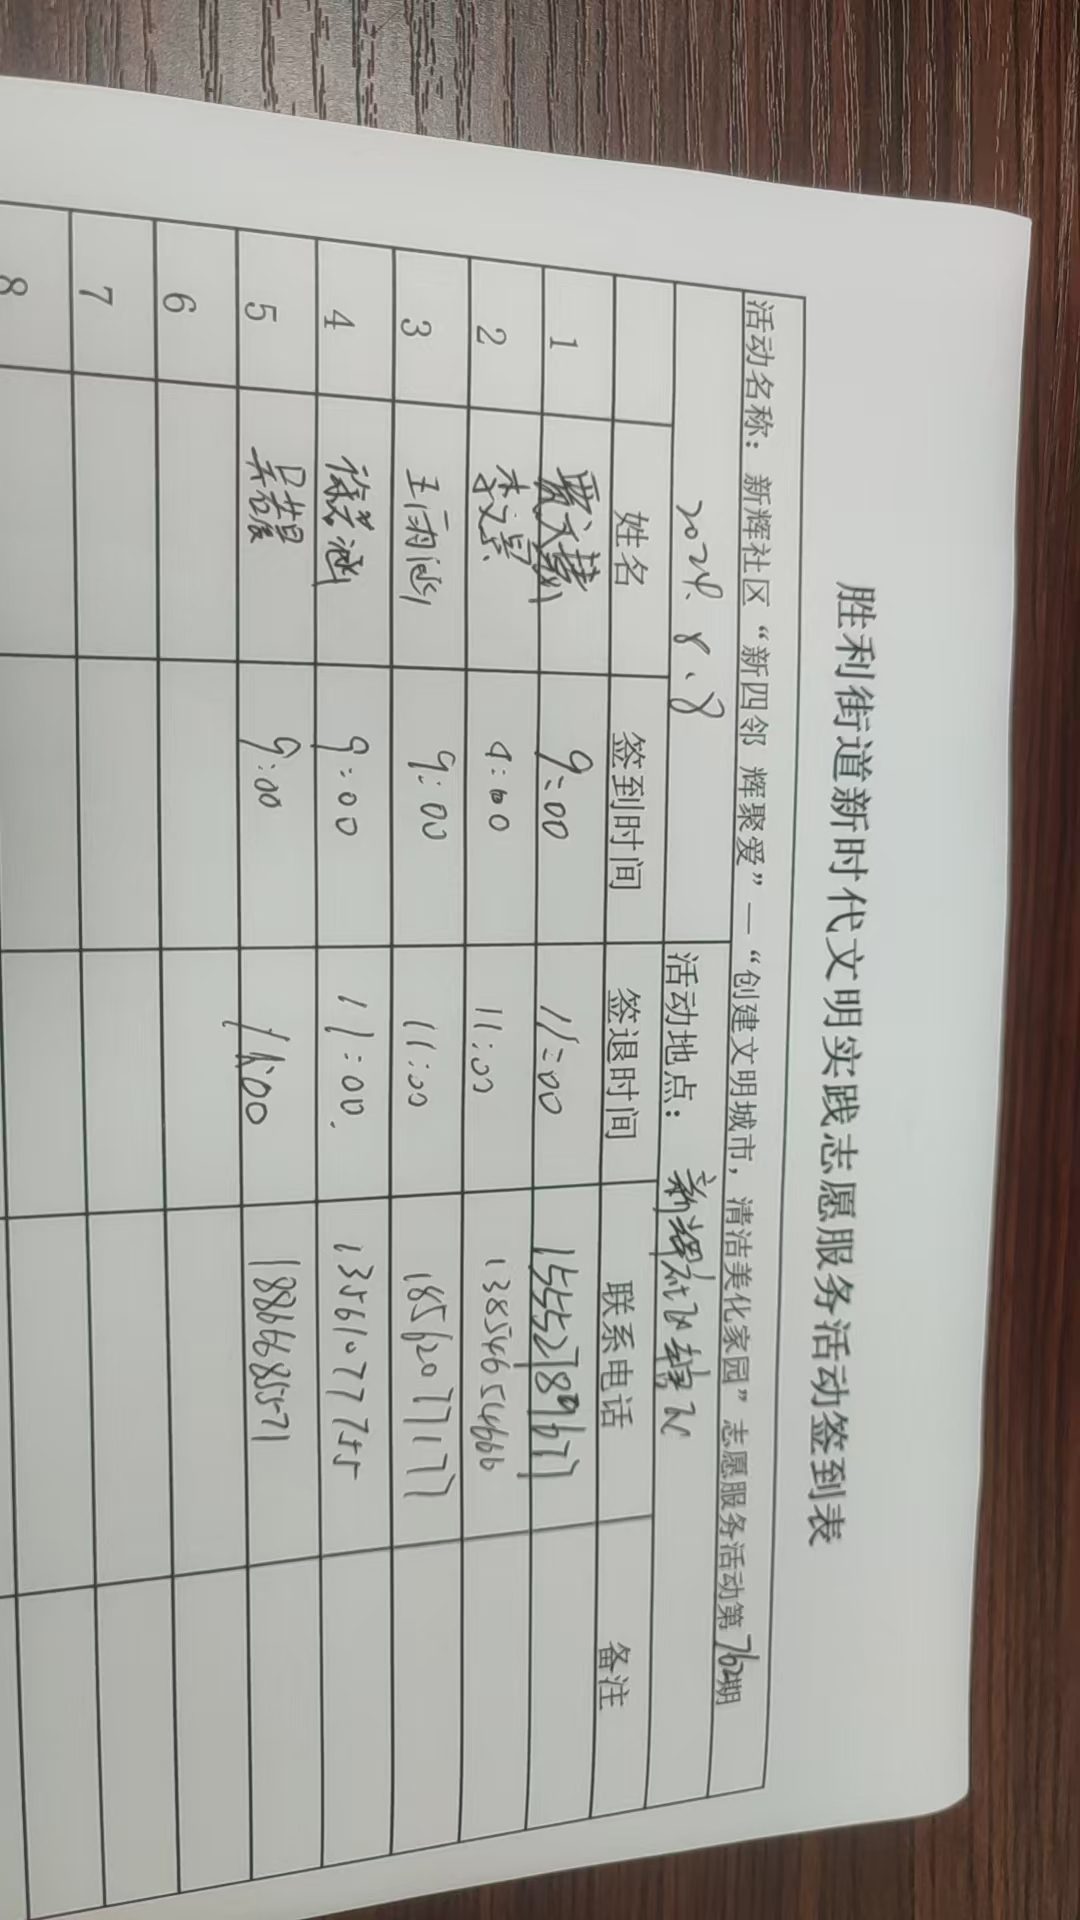 胜利街道新时代文明实践志愿服务活动签到表
活动名称：新辉社区“新四邻 辉聚爱”—“创建文明城市，清洁美化家园”志愿服务活动第762期
2024.8.8 活动地点：新辉社区辖区
姓名 签到时间 签退时间 联系电话 备注
1 贾文慧 9:00 11:00 15552789677
2 李文景 9:00 11:00 13854654666
3 王雨涵 9:00 11:00 18562077177
4 徐若涵 9:00 11:00. 13561077755
5 9:00 11:00 18866685571
6
7
8